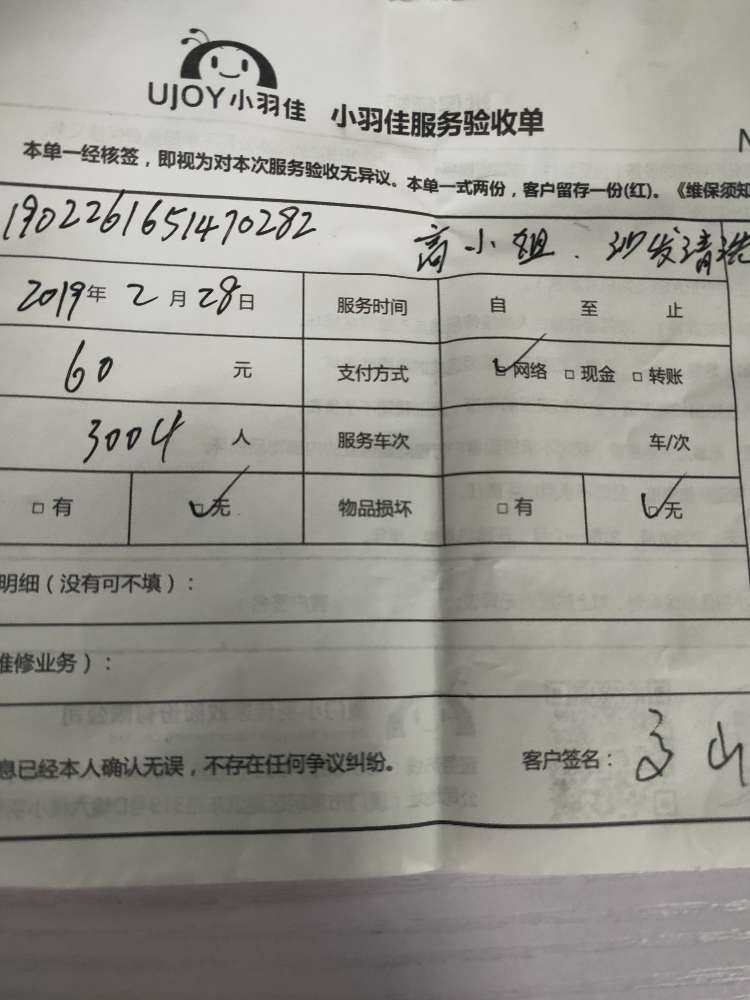 UJOY小羽佳 小羽佳服务验收单
本单一经核签，即视为对本次服务验收无异议。本单一式两份，客户留存一份(红)。《维保须知
1902261651470282 高小姐．沙发清洗
2019年 2月28日 服务时间 自 至 止
60 元 支付方式 ☑网络 □现金 □转账
3004 人 服务车次 车/次
□有 ☑无 物品损坏 □有 ☑无
明细（没有可不填）：
维修业务）：
息已经本人确认无误，不存在任何争议纠纷。 客户签名：